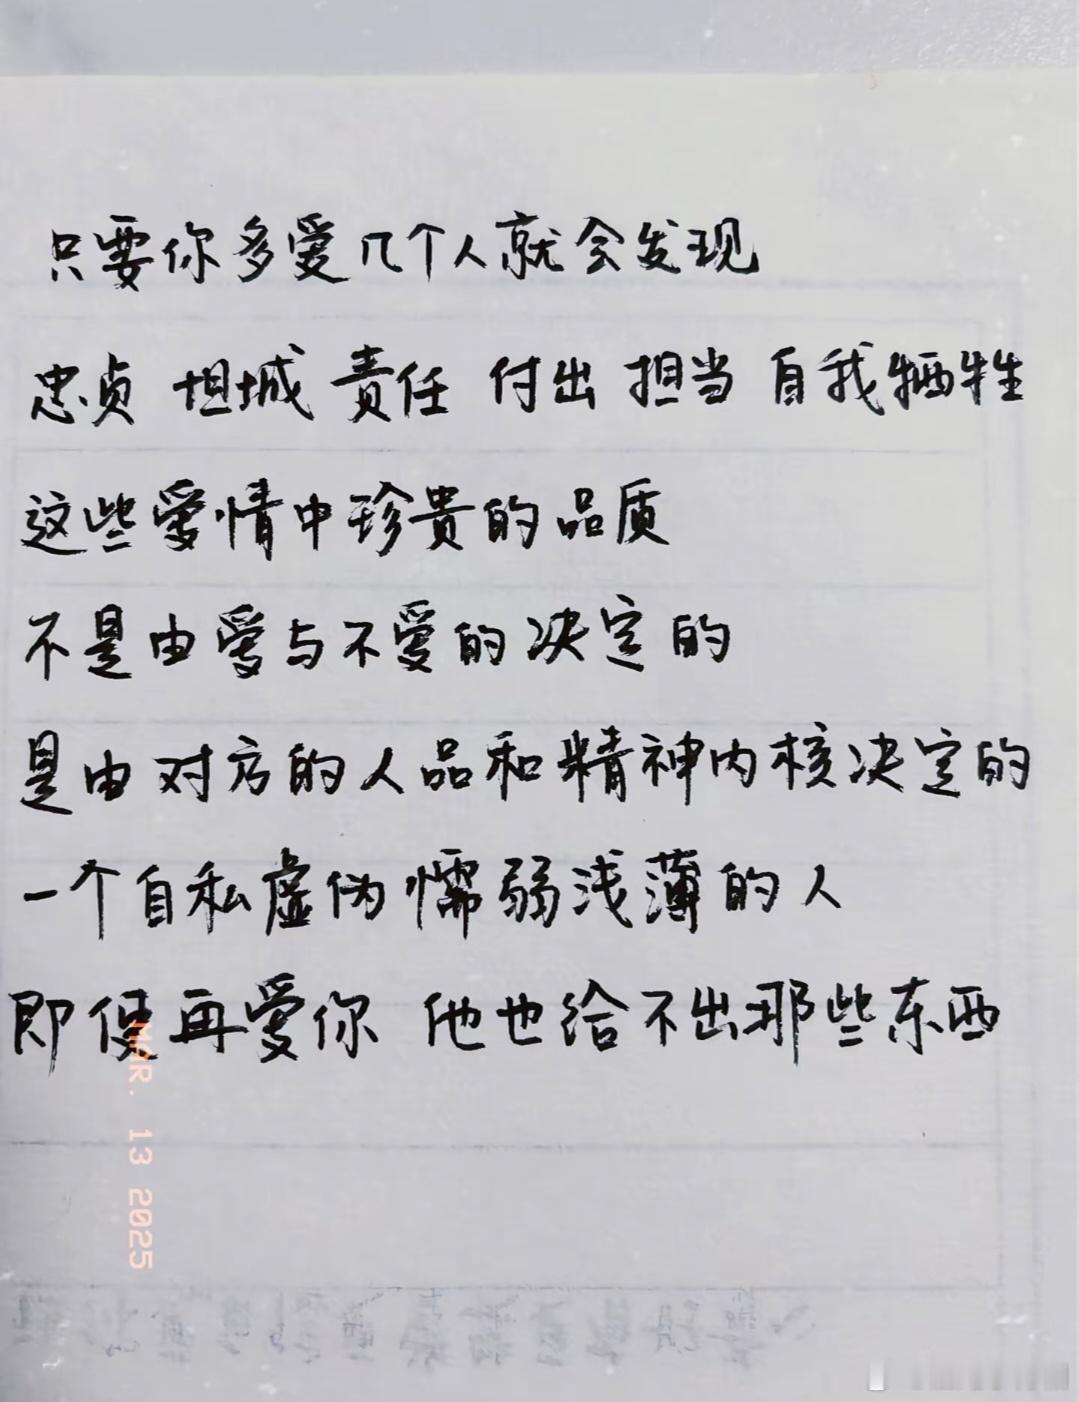 只要你多爱几个人就会发现
忠贞 坦城 责任 付出 担当 自我牺牲
这些爱情中珍贵的品质
不是由爱与不爱的决定的
是由对方的人品和精神内核决定的
一个自私虚伪懦弱浅薄的人
即便再爱你 他也给不出那些东西
MAR. 13 2025